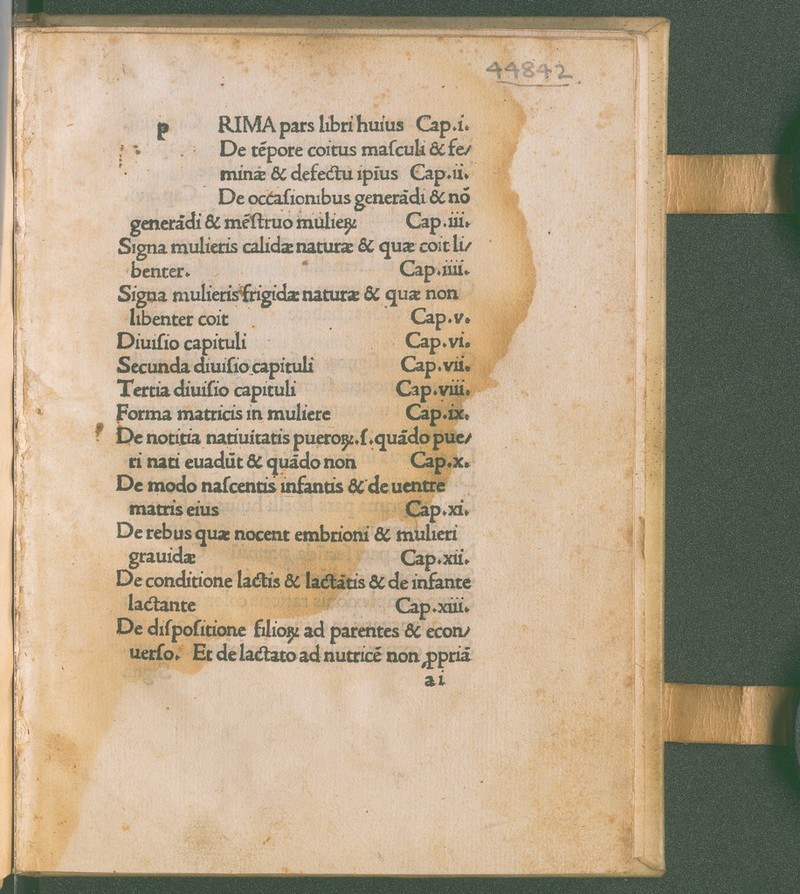 44842
p RIMA pars libri huius Cap.i.
De tẽpore coitus maſculi & fe/
minæ & defectu ipĩus Cap.ii.
De occaſionibus generãdi & nõ
generãdi & mẽſtruo mulieꝝ Cap.iii.
Signa mulieris calidæ naturæ & quæ coit li/
benter. Cap.iiii.
Signa mulieris frigidæ naturæ & quæ non
libenter coit Cap.v.
Diuiſio capituli Cap.vi.
Secunda diuiſio capituli Cap.vii.
Tertia diuiſio capituli Cap.viii.
Forma matricis in muliere Cap.ix.
De notitia natiuitatis pueroꝝ.ſ.quãdo pue/
ri nati euadũt & quãdo non Cap.x.
De modo naſcentis infantis & de uentre
matris eius Cap.xi.
De rebus quæ nocent embrioni & mulieri
grauidæ Cap.xii.
De conditione lactis & lactãtis & de infante
lactante Cap.xiii.
De diſpoſitione filioꝝ ad parentes & econ/
uerſo. Et de lactato ad nutricẽ non ꝓpriã
ai